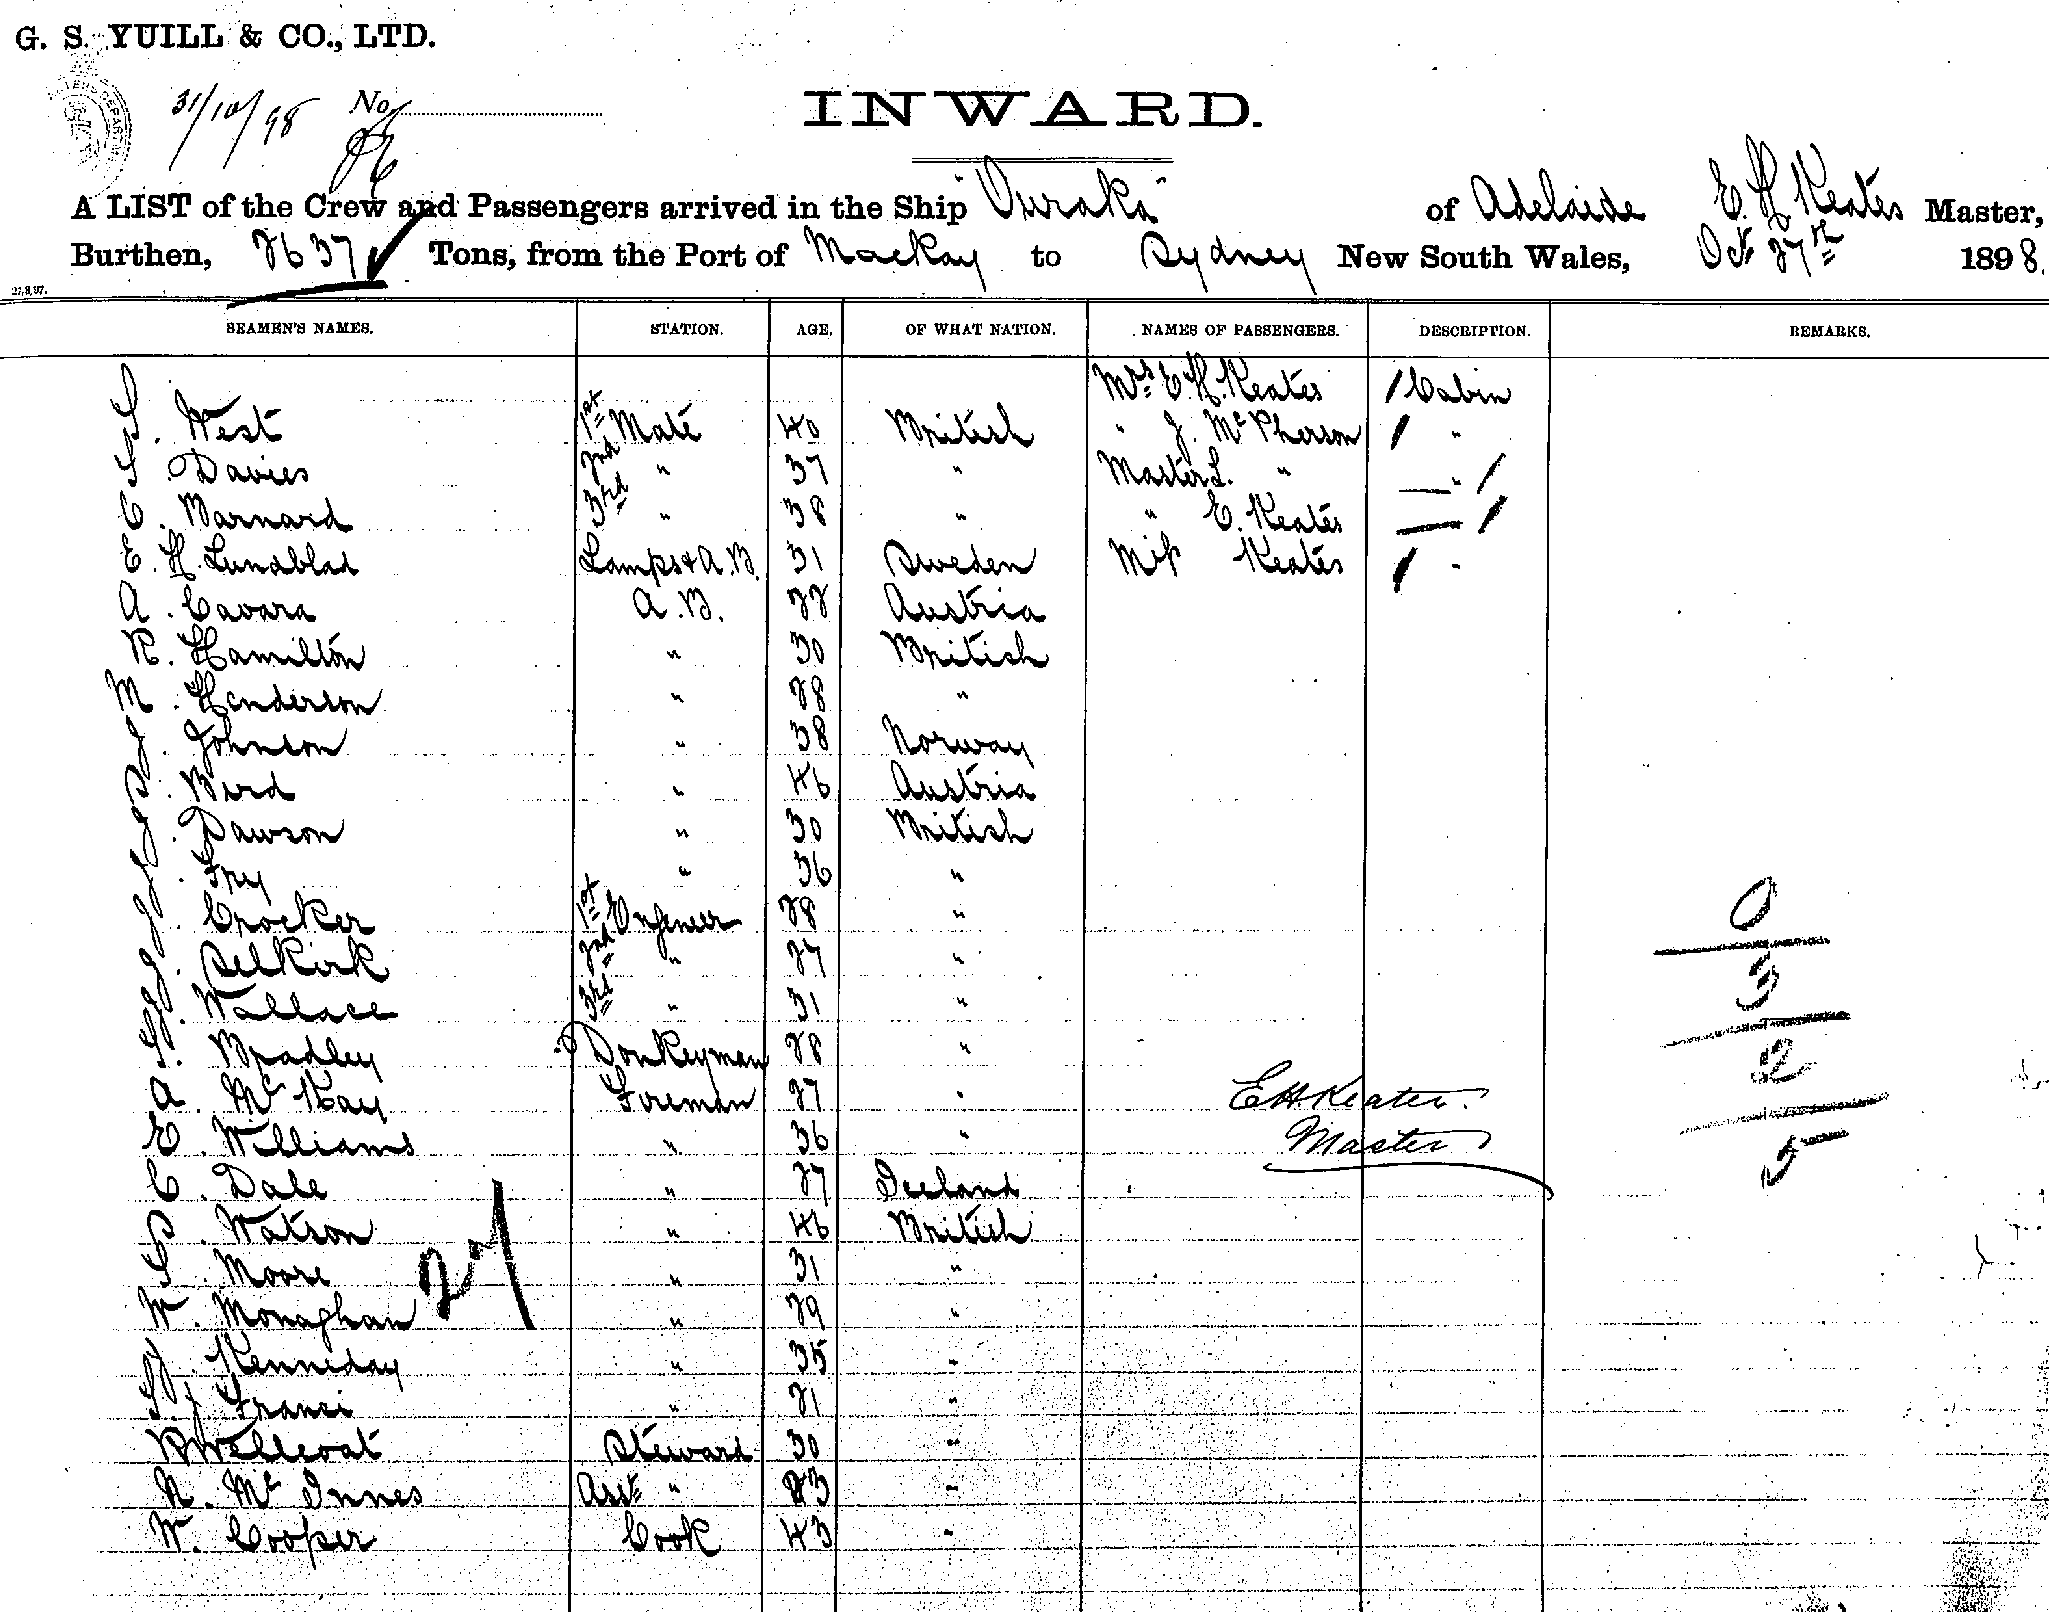 G. S. YUILL & CO., LTD.
31/10/98 No
INWARD.
A LIST of the Crew and Passengers arrived in the Ship "Ouraka" of Adelaide E. H. Keates Master,
Burthen, 2637 Tons, from the Port of Mackay to Sydney New South Wales, Oct. 27th 1898.
27,9,97.
SEAMEN'S NAMES. STATION. AGE, OF WHAT NATION. NAMES OF PASSENGERS. DESCRIPTION. REMARKS.
Mrs E. H. Keates / Cabin
West 1st Mate 40 British " J. McPherson / "
Davies 2nd " 37 " Master L. " " /
C. Barnard 3rd " 38 " " E. Keates " /
E. H. Lundblad Lamps & A.B. 31 Sweden Miss Keates / "
A. Cavara A.B. 22 Austria
R. Hamilton " 30 British
M. Henderson " 28 "
J. Johnson " 38 Norway
Bird " 46 Austria
J. Dawson " 30 British
J. Fry " 36 "
J. Crocker 1st Engineer 28 " 0
J. Selkirk 2nd " 27 "
Wallace 3rd " 31 " 3
Bradley Donkeyman 28 " 2
A. McKay Foreman 27 " E H Keates.
E. Williams " 36 " Master 5
C. Dale " 27 Iceland
P. Watson " 46 British
S. Moore " 31 " 27
W. Monaghan " 29 "
Kenneday " 35 "
Franci " 21 "
Wellcoat Steward 30 "
R. McInnes Asst " 23 "
W. Cooper Cook 43 "